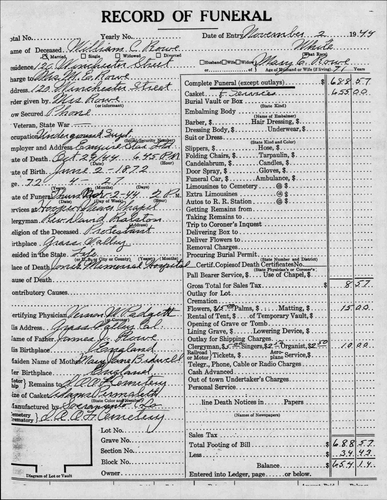 RECORD OF FUNERAL
otal No. Yearly No. Date of Entry November 2 1944
me of Deceased William C. Rowe White
Married, Single, Widowed, Divorced Husband Wife of Mary E. Rowe
esidence 120 Winchester Street Age of Husband or Wife (if living) 71 Years
harge to Mrs M. E. Rowe
ddress 120 Winchester Street
rder given by Mrs Rowe
ow Secured Phone
Veteran, State War
ccupation Underground Supt.
mployer and Address Empire Star Mine
ate of Death Oct 29/44 6:45 PM
ate of Birth June 2-1872
ge 72 4 - 27
ate of Funeral Nov 2-44 2 PM
ervices at Chapel
lergyman Rev David Ralston
eligion of the Deceased Protestant
irthplace Grass Valley
esided in the State Life
lace of Death Jones Memorial Hospital
ause of Death
ontributory Causes
ertifying Physician Vernon W Padgett
is Address Grass Valley Cal
ame of Father James J. Rowe
is Birthplace England
aiden Name of Mother Mary Jane Bidwell
er Birthplace England
Remains to Cemetery
ize of Casket
anufactured by Sacramento
Cemetery
Lot No.
Grave No.
Section No.
Block No.
Owner
Diagram of Lot or Vault
Complete Funeral (except outlays) $ 688 57
Casket & Services 655 00
Burial Vault or Box
(State Kind)
Embalming Body
(Name of Embalmer)
Barber, $ Hair Dressing, $
Dressing Body, $ Underwear, $
Suit or Dress
(State Kind and Color)
Slippers, $ Hose, $
Folding Chairs, $ Tarpaulin, $
Candelabrum, $ Candles, $
Door Spray, $ Gloves, $
Funeral Car, $ Ambulance, $
Limousines to Cemetery @ $
Extra Limousines @ $
Autos to R. R. Station @ $
Getting Remains from
Taking Remains to
Trip to Coroner's Inquest
Delivering Box to
Deliver Flowers to
Removal Charges
Procuring Burial Permit
(State Number and District)
Certif. Copies of Death Certificates No.
(State Physician's or Coroner's)
Pall Bearer Service, $ Use of Chapel, $
Gross Total for Sales Tax $ 8 57
Outlay for Lot
Cremation
Flowers, $15.00 Palms, Matting, $ 15 00
Rental of Tent, $ of Temporary Vault, $
Opening of Grave or Tomb
Lining Grave, $ Lowering Device, $
Outlay for Shipping Charges
Clergyman, $5.00 Singers, $2.50 Organist, $2.50 10 00
Railroad or Motor Tickets, $ Aeroplane Service, $
Telegr., Phone, Cable or Radio Charges
Cash Advanced
Out of town Undertaker's Charges
Personal Service
line Death Notices in Papers
(Names of Newspapers)
Sales Tax
Total Footing of Bill $ 688 57
Less 34 43
Balance $ 654 14
Entered into Ledger, page or below.